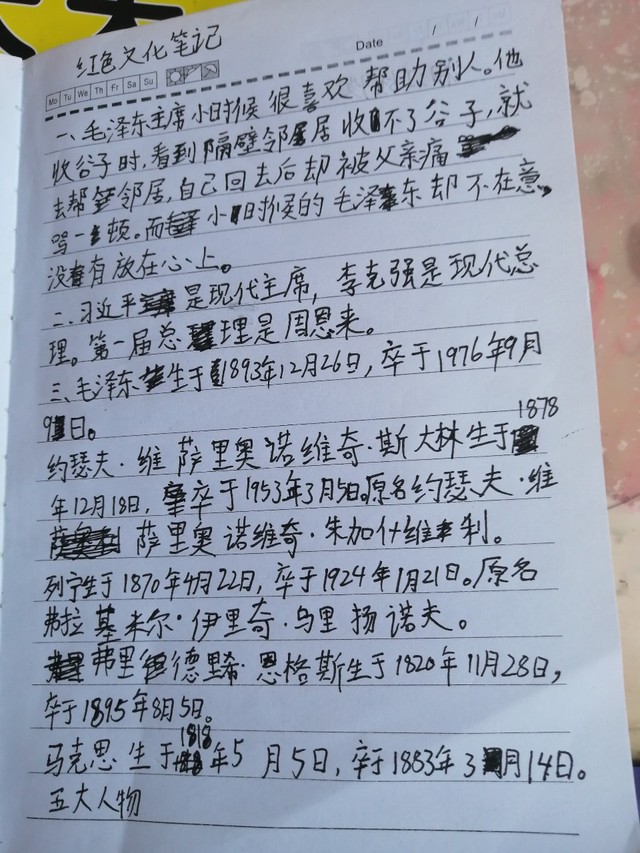 红色文化笔记
Date / /
Mo Tu We Th Fr Sa Su
一、毛泽东主席小时候很喜欢帮助别人。他
收谷子时,看到隔壁邻居居收不了谷子,就
去帮邻居,自己回去后却被父亲痛
骂一顿。而小时候的毛泽东却不在意,
没有放在心上。
二、习近平是现代主席,李克强是现代总
理。第一届总理是周恩来。
三、毛泽东生于1893年12月26日,卒于1976年9月
9日。
约瑟夫·维萨里奥诺维奇·斯大林生于1878
年12月18日,卒于1953年3月5日。原名约瑟夫·维
萨里奥诺维奇·朱加什维利。
列宁生于1870年4月22日,卒于1924年1月21日。原名
弗拉基米尔·伊里奇·乌里扬诺夫。
弗里德里希·恩格斯生于1820年11月28日,
卒于1895年8月5日。
马克思生于1818年5月5日,卒于1883年3月14日。
五大人物